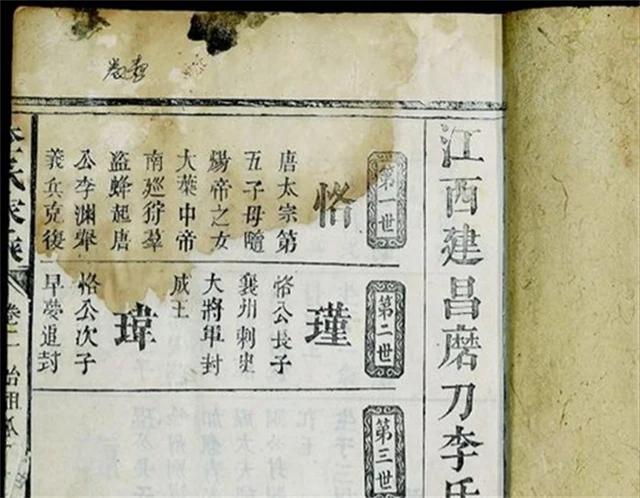 江西建昌磨刀李氏
第一世
恪
唐太宗第
五子母隨
煬帝之女
大葉中帝
南廵狩羣
盜蜂起唐
公李淵舉
義兵克復
第二世
瑾
恪公長子
襄州刺史
大將軍封
成王
瑋
恪公次子
早夢追封
第三世
李氏家族
卷二
始祖